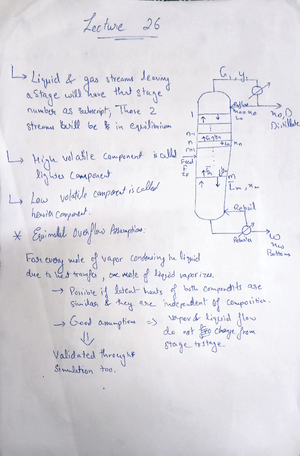 Lecture 26
Liquid & gas streams leaving
a stage will have that stage
number as subscript, These 2
streams will be in equilibrium
High volatile component is called
lighter component
Low volatile component is called
heavier component.
* Equimolal Overflow Assumption:
For every mole of vapor condensing in liquid
due to heat transfer, one mole of liquid vaporizes.
→ Possible if latent heats of both components are
similar & they are independent of composition.
→ Good assumption ⇒ vapor & liquid flow
do not change from
stage to stage.
⇓
Validated through
simulation too.
G1, y1
Reflux
x0, D
Distillate
1
n-1
n
n+1
Feed
m
Reboil
Reboiler
W
Bottoms